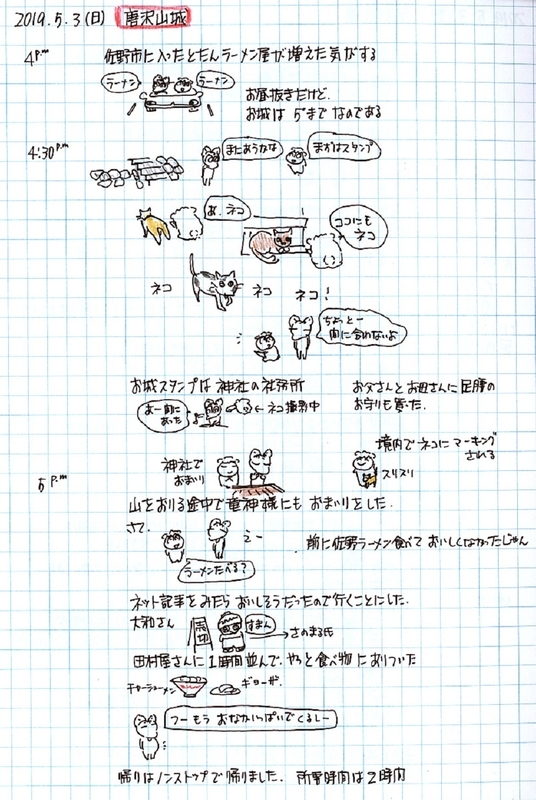 2019.5.3(日) 唐沢山城
4 p.m
佐野市に入ったとたんラーメン屋が増えた気がする
ラーメン
ラーメン
お昼抜きだけど、
お城は 5時まで なのである
4:30 p.m
まにあうかな
まずはスタンプ
あ、ネコ
ココにも
ネコ
ネコ
ネコ
ネコ!
ちょっとー
間に合わないよ
お城スタンプは 神社の社務所
お父さんとお母さんに足腰の
お守りも買った.
お一間に
あった
←ネコ撮影中
境内でネコにマーキング
される
神社で
おまいり
スリスリ
5 p.m
山をおりる途中で竜神様にも おまいりをした.
さて、
えー
前に佐野ラーメン食べて おいしくなかったじゃん
ラーメンたべる?
ネット記事をみたら おいしそうだったので行くことにした.
大和さん
すまん
さのまる氏
田村屋さんに 1時間並んで、やっと食べ物にありついた
チャーシューメン
ギョーザ
フーもう おなかいっぱいでくるしー
帰りはノンストップで帰りました. 所要時間は2時間